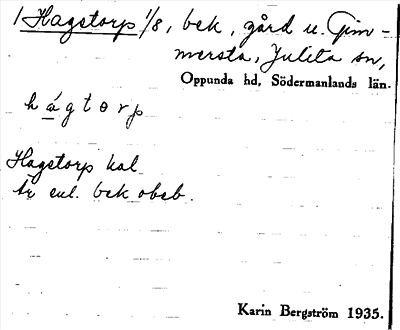 1 Hagstorp 1/8, bek, gård u. Gim-
mersta, Julita sn,
Oppunda hd, Södermanlands län.
h á g t o r p
Hagstorp kal
är enl. bek obeb.
Karin Bergström 1935.